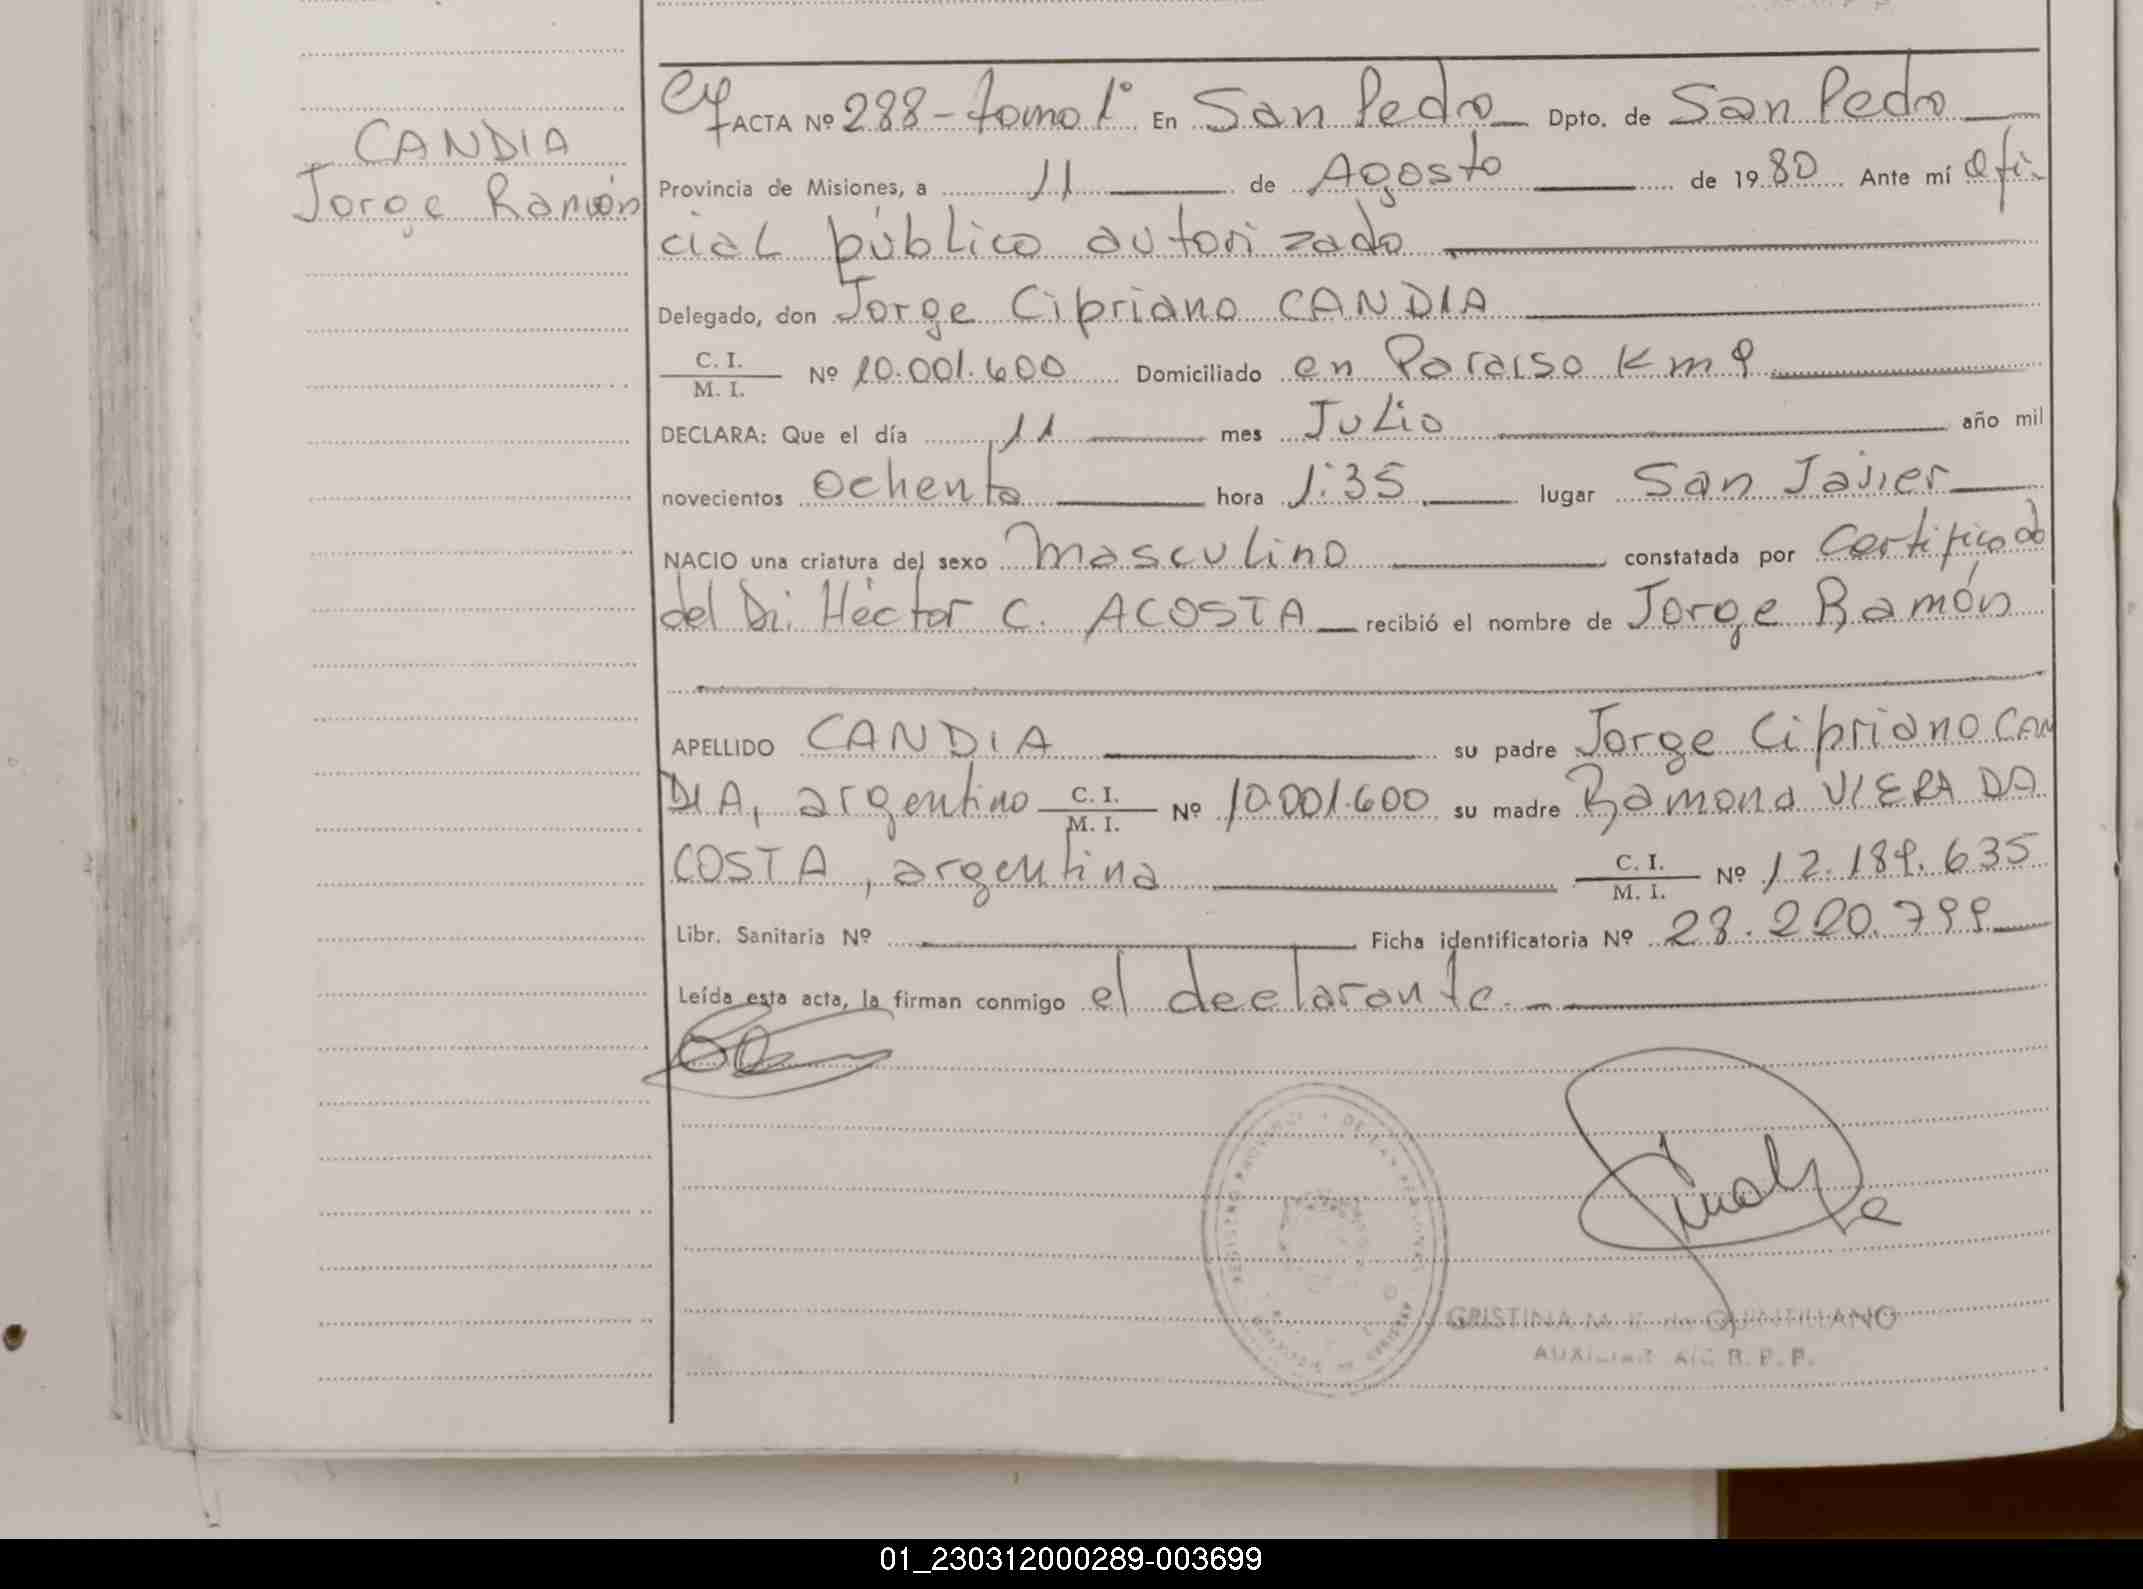 CANDIA
Jorge Ramón
ACTA Nº 288 - tomo 1º En San Pedro Dpto. de San Pedro
Provincia de Misiones, a 11 de Agosto de 1980 Ante mí Ofi-
cial público autorizado
Delegado, don Jorge Cipriano CANDIA
C. I.
M. I. Nº 10.001.600 Domiciliado en Paraiso Km 9
DECLARA: Que el día 11 mes Julio año mil
novecientos ochenta hora 1:35 lugar San Javier
NACIO una criatura del sexo masculino constatada por Certificado
del Dr. Héctor C. ACOSTA recibió el nombre de Jorge Ramón
APELLIDO CANDIA su padre Jorge Cipriano CAN
DIA, argentino C. I. M. I. Nº 10.001.600 su madre Ramona VIERA DA
COSTA, argentina C. I. M. I. Nº 12.189.635
Libr. Sanitaria Nº Ficha identificatoria Nº 28.220.799
Leída esta acta, la firman conmigo el declarante.
REGISTRO PROVINCIAL DE LAS PERSONAS
CRISTINA M. de QUINTILLANO
AUXILIAR A/C R. P. P.
01_230312000289-003699